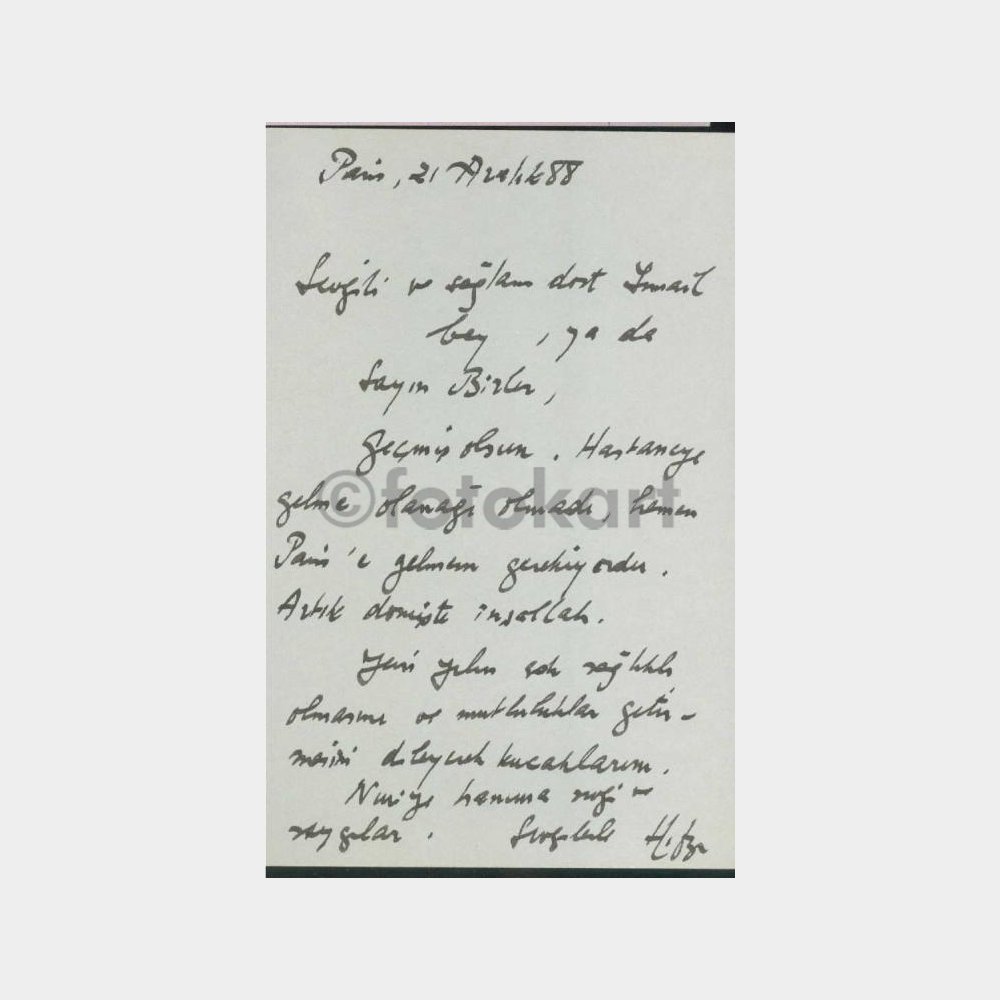 Paris, 21 Aralık 88
Sevgili ve sağlam dost İsmail
bey, ya da
Sayın Birler,
Geçmiş olsun. Hastaneye
gelme olanağı olmadı, hemen
Paris'e gelmem gerekiyordu.
Artık inşallah.
Yeni yılın çok sağlıklı
olmasını ve mutluluklar getir-
mesini dileyerek kucaklarım.
Nuriye hanıma sevgi ve
saygılar. Sevgilerle Hıfzı
©fotokart